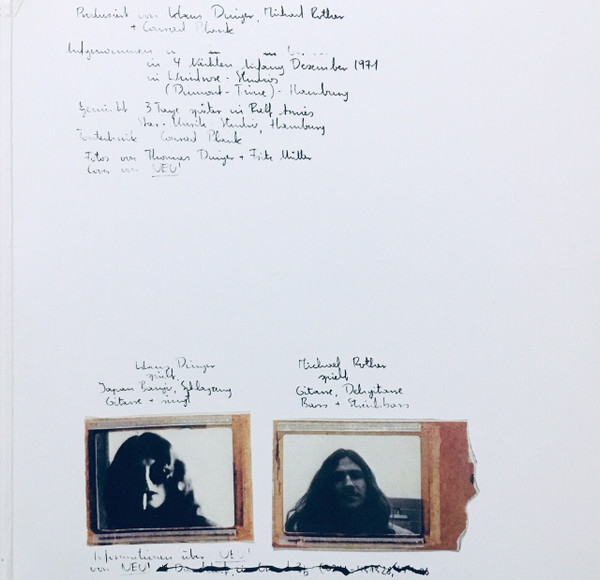 Produziert von Klaus Dinger, Michael Rother
+ Conrad Plank
Aufgenommen
in 4 Nächten Anfang Dezember 1971
in Windrose-Studios
(Dumont-Time) - Hamburg
Gemischt 3 Tage später in Ralf
Star-Musik-Studio, Hamburg
Tontechnik Conrad Plank
Fotos von Thomas Dinger + Fritz Müller
Cover von NEU!
Klaus Dinger
spielt
Japan Banjo, Schlagzeug
Gitarre + singt
Michael Rother
spielt
Gitarre, Dehgitarre
Bass + Streichbass
Informationen über NEU!
von NEU!